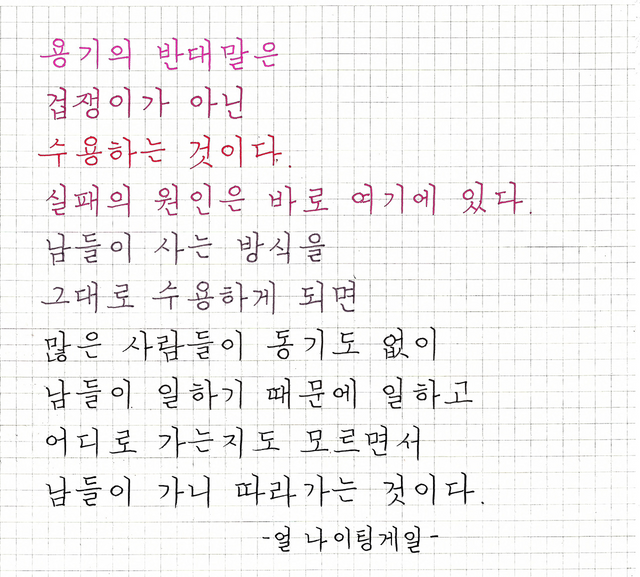 용기의 반대말은
겁쟁이가 아닌
수용하는 것이다.
실패의 원인은 바로 여기에 있다.
남들이 사는 방식을
그대로 수용하게 되면
많은 사람들이 동기도 없이
남들이 일하기 때문에 일하고
어디로 가는지도 모르면서
남들이 가니 따라가는 것이다.
-얼 나이팅게일-